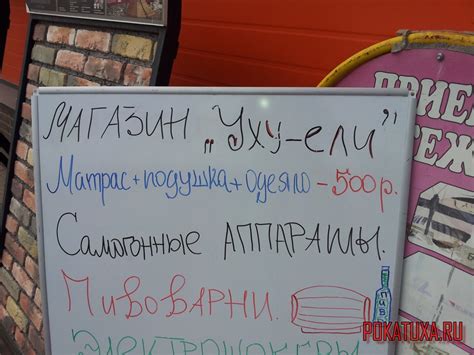 МАГАЗИН „Уху-ели"
Матрас+подушка+одеяло – 500 р.
Самогонные АППАРАТЫ.
Пивоварни.
пиво
ЭЛЕКТРОШОКЕРЫ
ПРИЕ
ТЕЖ
POKATUXA.RU